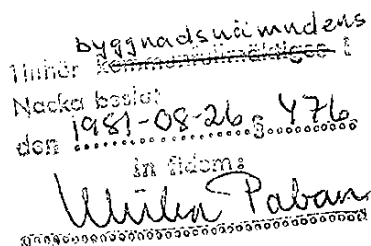 byggnadsnämndens
Tillhör kommunfullmäktiges i
Nacka beslut
den 1981-08-26 § 476
in fidem: